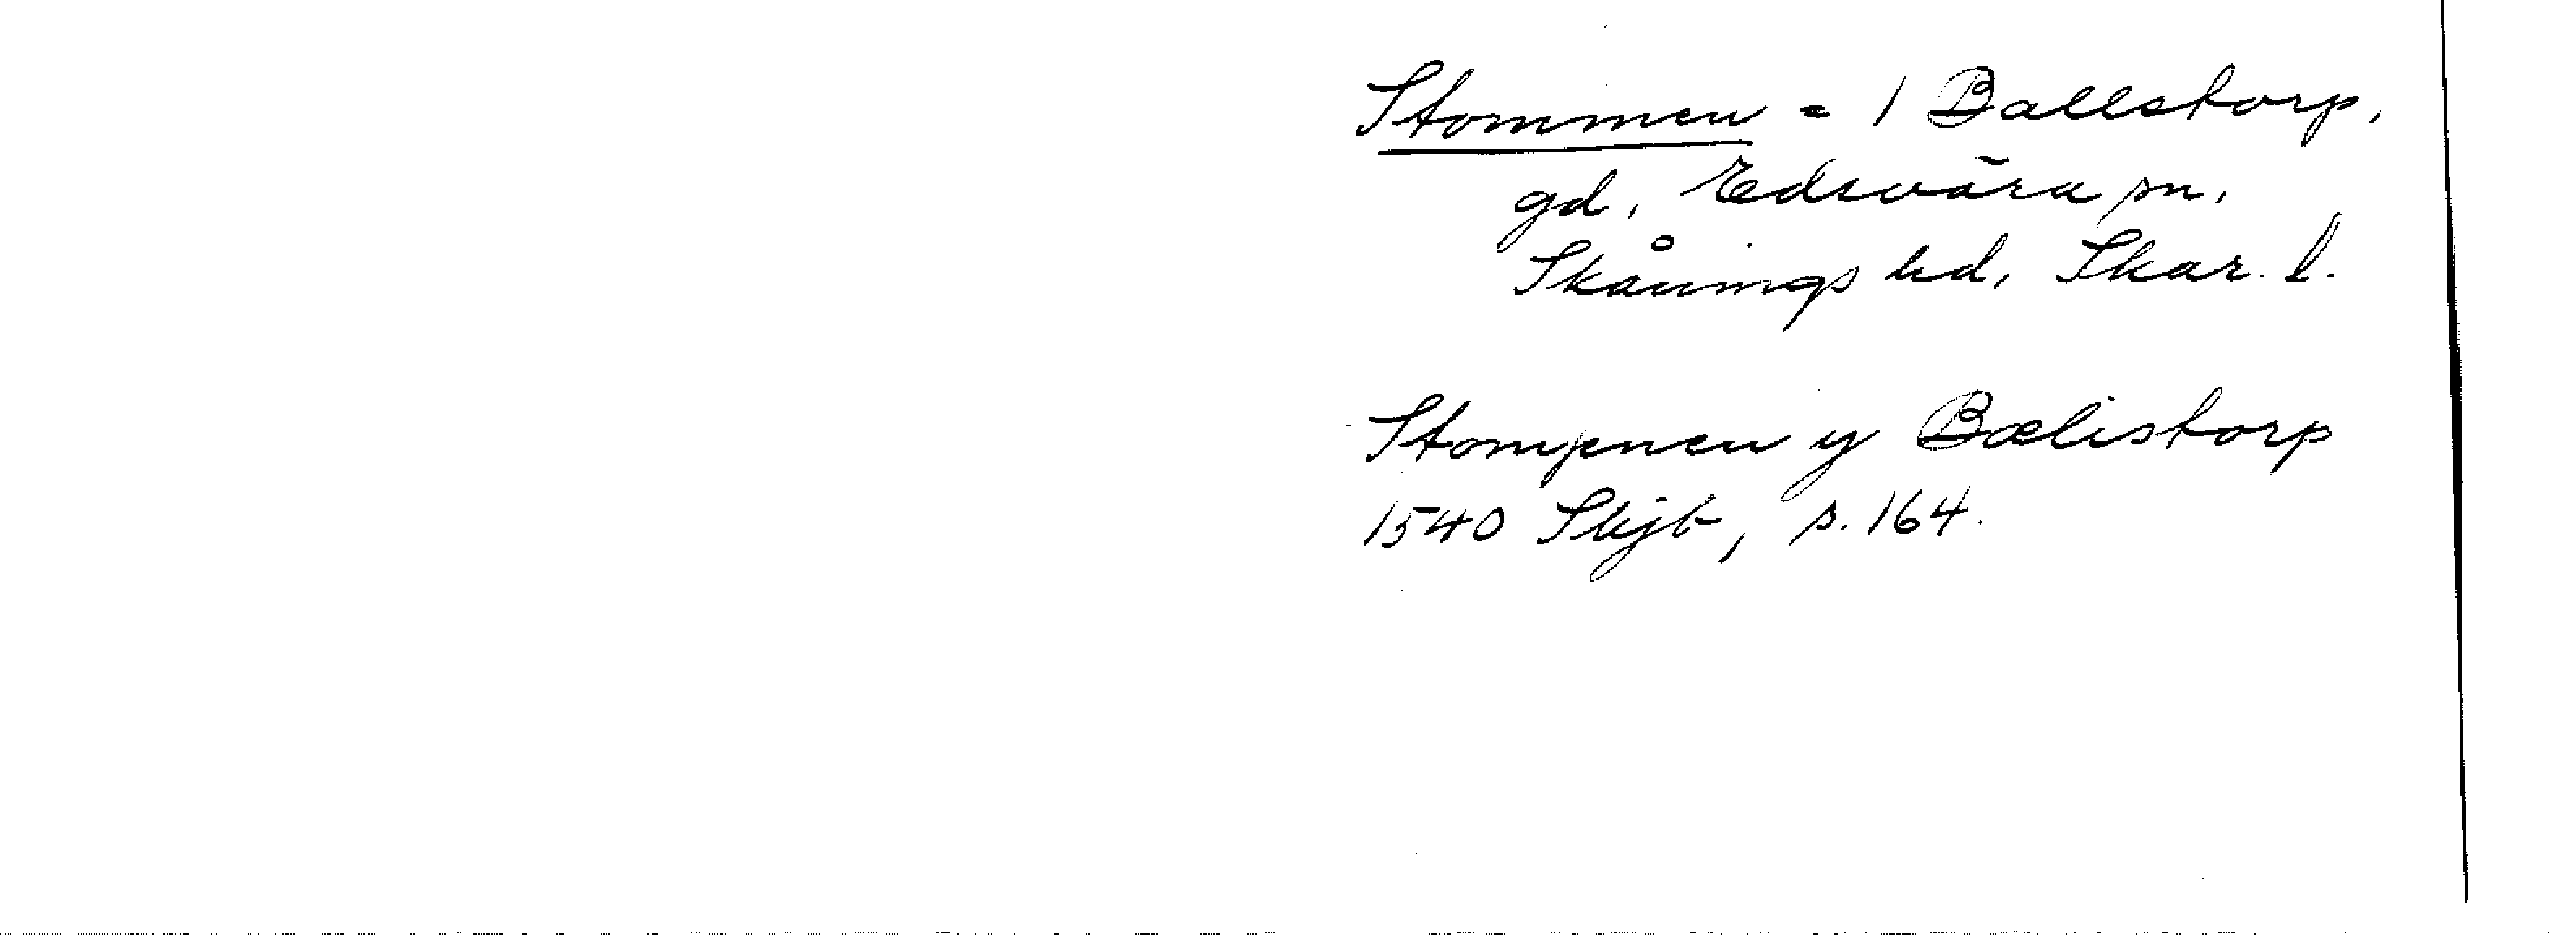 Stommen = 1 Ballstorp,
gd, Edsvära sn,
Skånings hd, Skar. l.
Stompnen y Bælistorp
1540 Skjb, s. 164.